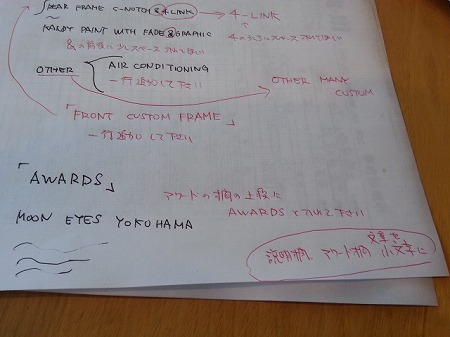 REAR FRAME C-NOTCH & 4-LINK → 4-LINK
KANDY PAINT WITH FADE & GRAPHIC
&の前後に少しスペース入れて下さい
4の少し スペース入れて下さい
OTHER
AIR CONDITIONING
一行追加して下さい
OTHER MANY
CUSTOM
「FRONT CUSTOM FRAME」
一行追加して下さい
「AWARDS」
アワードの欄の上段に
AWARDSと入れて下さい
MOON EYES YOKOHAMA
説明欄、アワード欄 文字を
小文字に